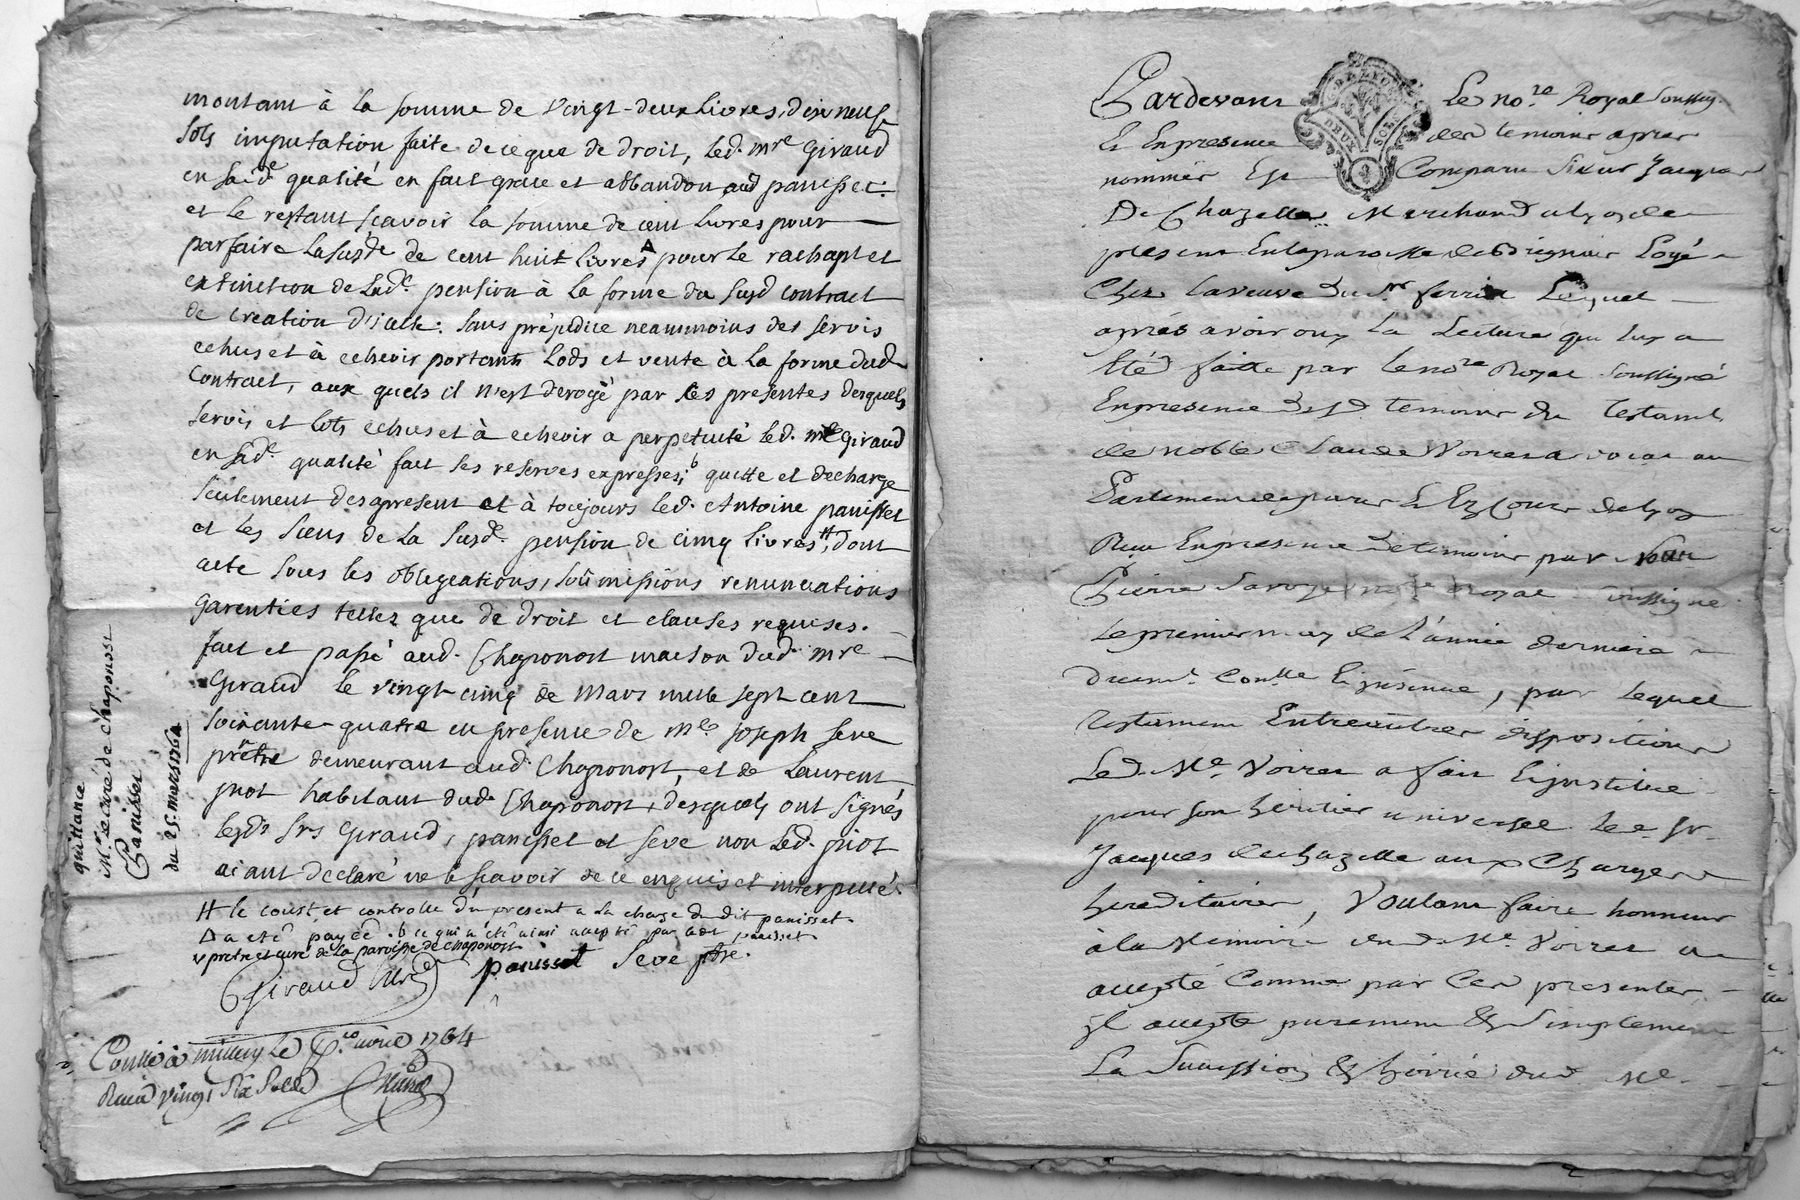 montant à la somme de vingt-deux livres dix neuf
sols imputation faite de ce que de droit, led. mre Giraud
en sad.e qualité en fait grace et abbandon aud panisset.
et le restant scavoir la somme de cent livres pour
parfaire la susd.e de cent huit livres pour le rachapt et
extinction de lad.e pension à la forme du susd contract
de creation d'icelle. sans préjudice neammoins des servis
echus et à echeoir portants lods et vente à la forme dud
Contract, aux quels il n'est derogé par les presentes desquels
servis et lots echus et à echeoir a perpetuité led. mre Giraud
en sad.e qualité fait ses reserves expresses, b quitte et decharge
seulement des apresent et à toujours led. Antoine panisset
et les siens de la susd.e pension de cinq livres #, dont
acte sous les obligeations, soûmissions renunciations
garenties telles que de droit et clauses requises.
fait et passé aud. Chaponost maison dud. mre
Giraud le vingt-cinq de mars mille sept cent
soixante-quatre en presence de mre joseph seve
prêtre demeurant aud. Chaponost, et de Laurent
juot habitant dud. Chaponost, desquels ont signés
lesd.s srs Giraud, panisset et seve non led. juot
aiant declaré ne le scavoir de ce enquis et interpellé
# le coust et controlle du present a la charge du dit panisset.
Δ a eté payée. b ce qui a été ainsi accepté par ledt panisset
v pretre et curé de la paroisse de chaponost
Giraud Curé panisset Seve ptre.
Conllé à millery le avril 1764
Reçu vingt six sols
quittance
Mr. le curé de Chaponost
Panisset
du 25. mars 1764
Pardevant Le no.re Royal soussig.
Et En presence des temoins apres
nommés Est Comparu Sieur Jacques
De Chazelle Marchand a Lyon de
present En la paroisse de Brignais Logé
Chez la veuve du Sr ferrin Lequel
aprés avoir ouy la Lecture qui luy a
Eté faitte par le nore Royal soussigné
En presence desd temoins du Testament
de noble Claude Voiret avocat au
Parlement de paris & Ez Cours de Lyon
Reçu En presence de temoins par
Pierre Savoye nore Royal soussigné
Le premier may de l'année derniere
Duemt. Conllé Et insinué, par Lequel
Testament Entre autres dispositions
Led. Me. Voiret a fait & institué
pour son heritier universel Le Sr
Jacques dechazelle aux Charges
hereditaires, Voulant faire honneur
à la Memoire dud. Me. Voiret a
accepté Comme par Ces presentes
jl accepte purement & Simplement
La Succession & hoirie dud Me.